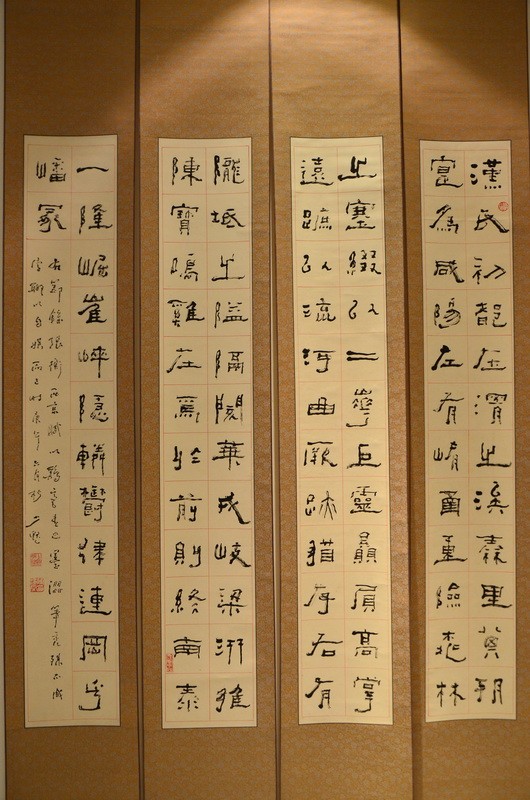 漢氏初都在渭之涘秦里其朔
寔為咸陽左有崤函重險桃林
之塞綴以二華巨靈贔屓高掌
遠蹠以流河曲厥跡猶存右有
隴坻之隘隔閡華戎岐梁汧雍
陳寶鳴雞在焉於前則終南泰
一隆崛崔崒隱轔鬱律連岡乎
嶓冢
右節錄張衡西京賦以墨澀筆殊不成
字聊以自娛而已時庚午